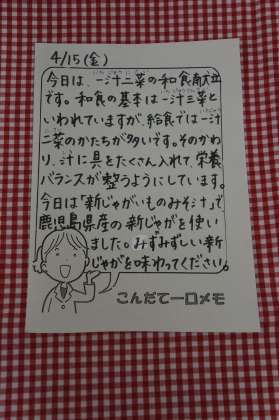 4/15(金)
今日は、一汁二菜の和食献立
です。和食の基本は一汁三菜と
いわれていますが、給食では一汁
二菜のかたちが多いです。そのかわ
り、汁に具をたくさん入れて、栄養
バランスが整うようにしています。
今日は「新じゃがいものみそ汁」で
鹿児島県産の新じゃがを使い
ました。みずみずしい新
じゃがを味わってください。
こんだて一口メモ